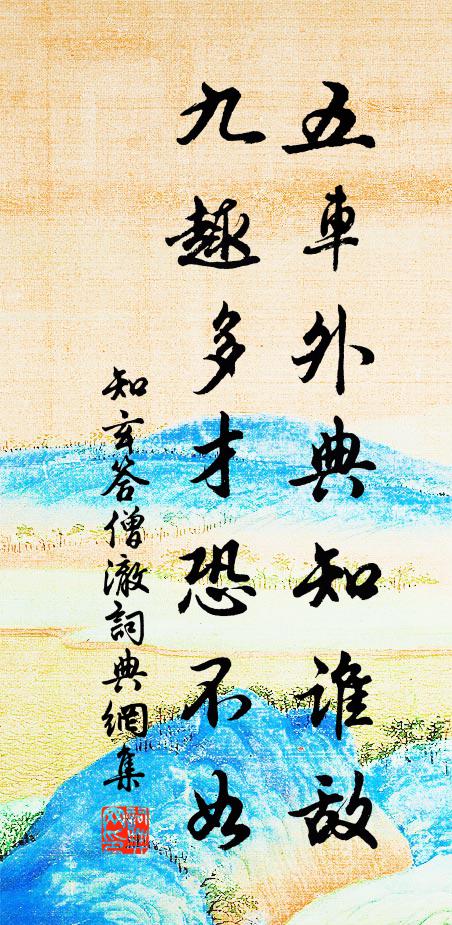 五車外典知誰敵
九趣多才恐不如
知玄答僧澈詞典網集